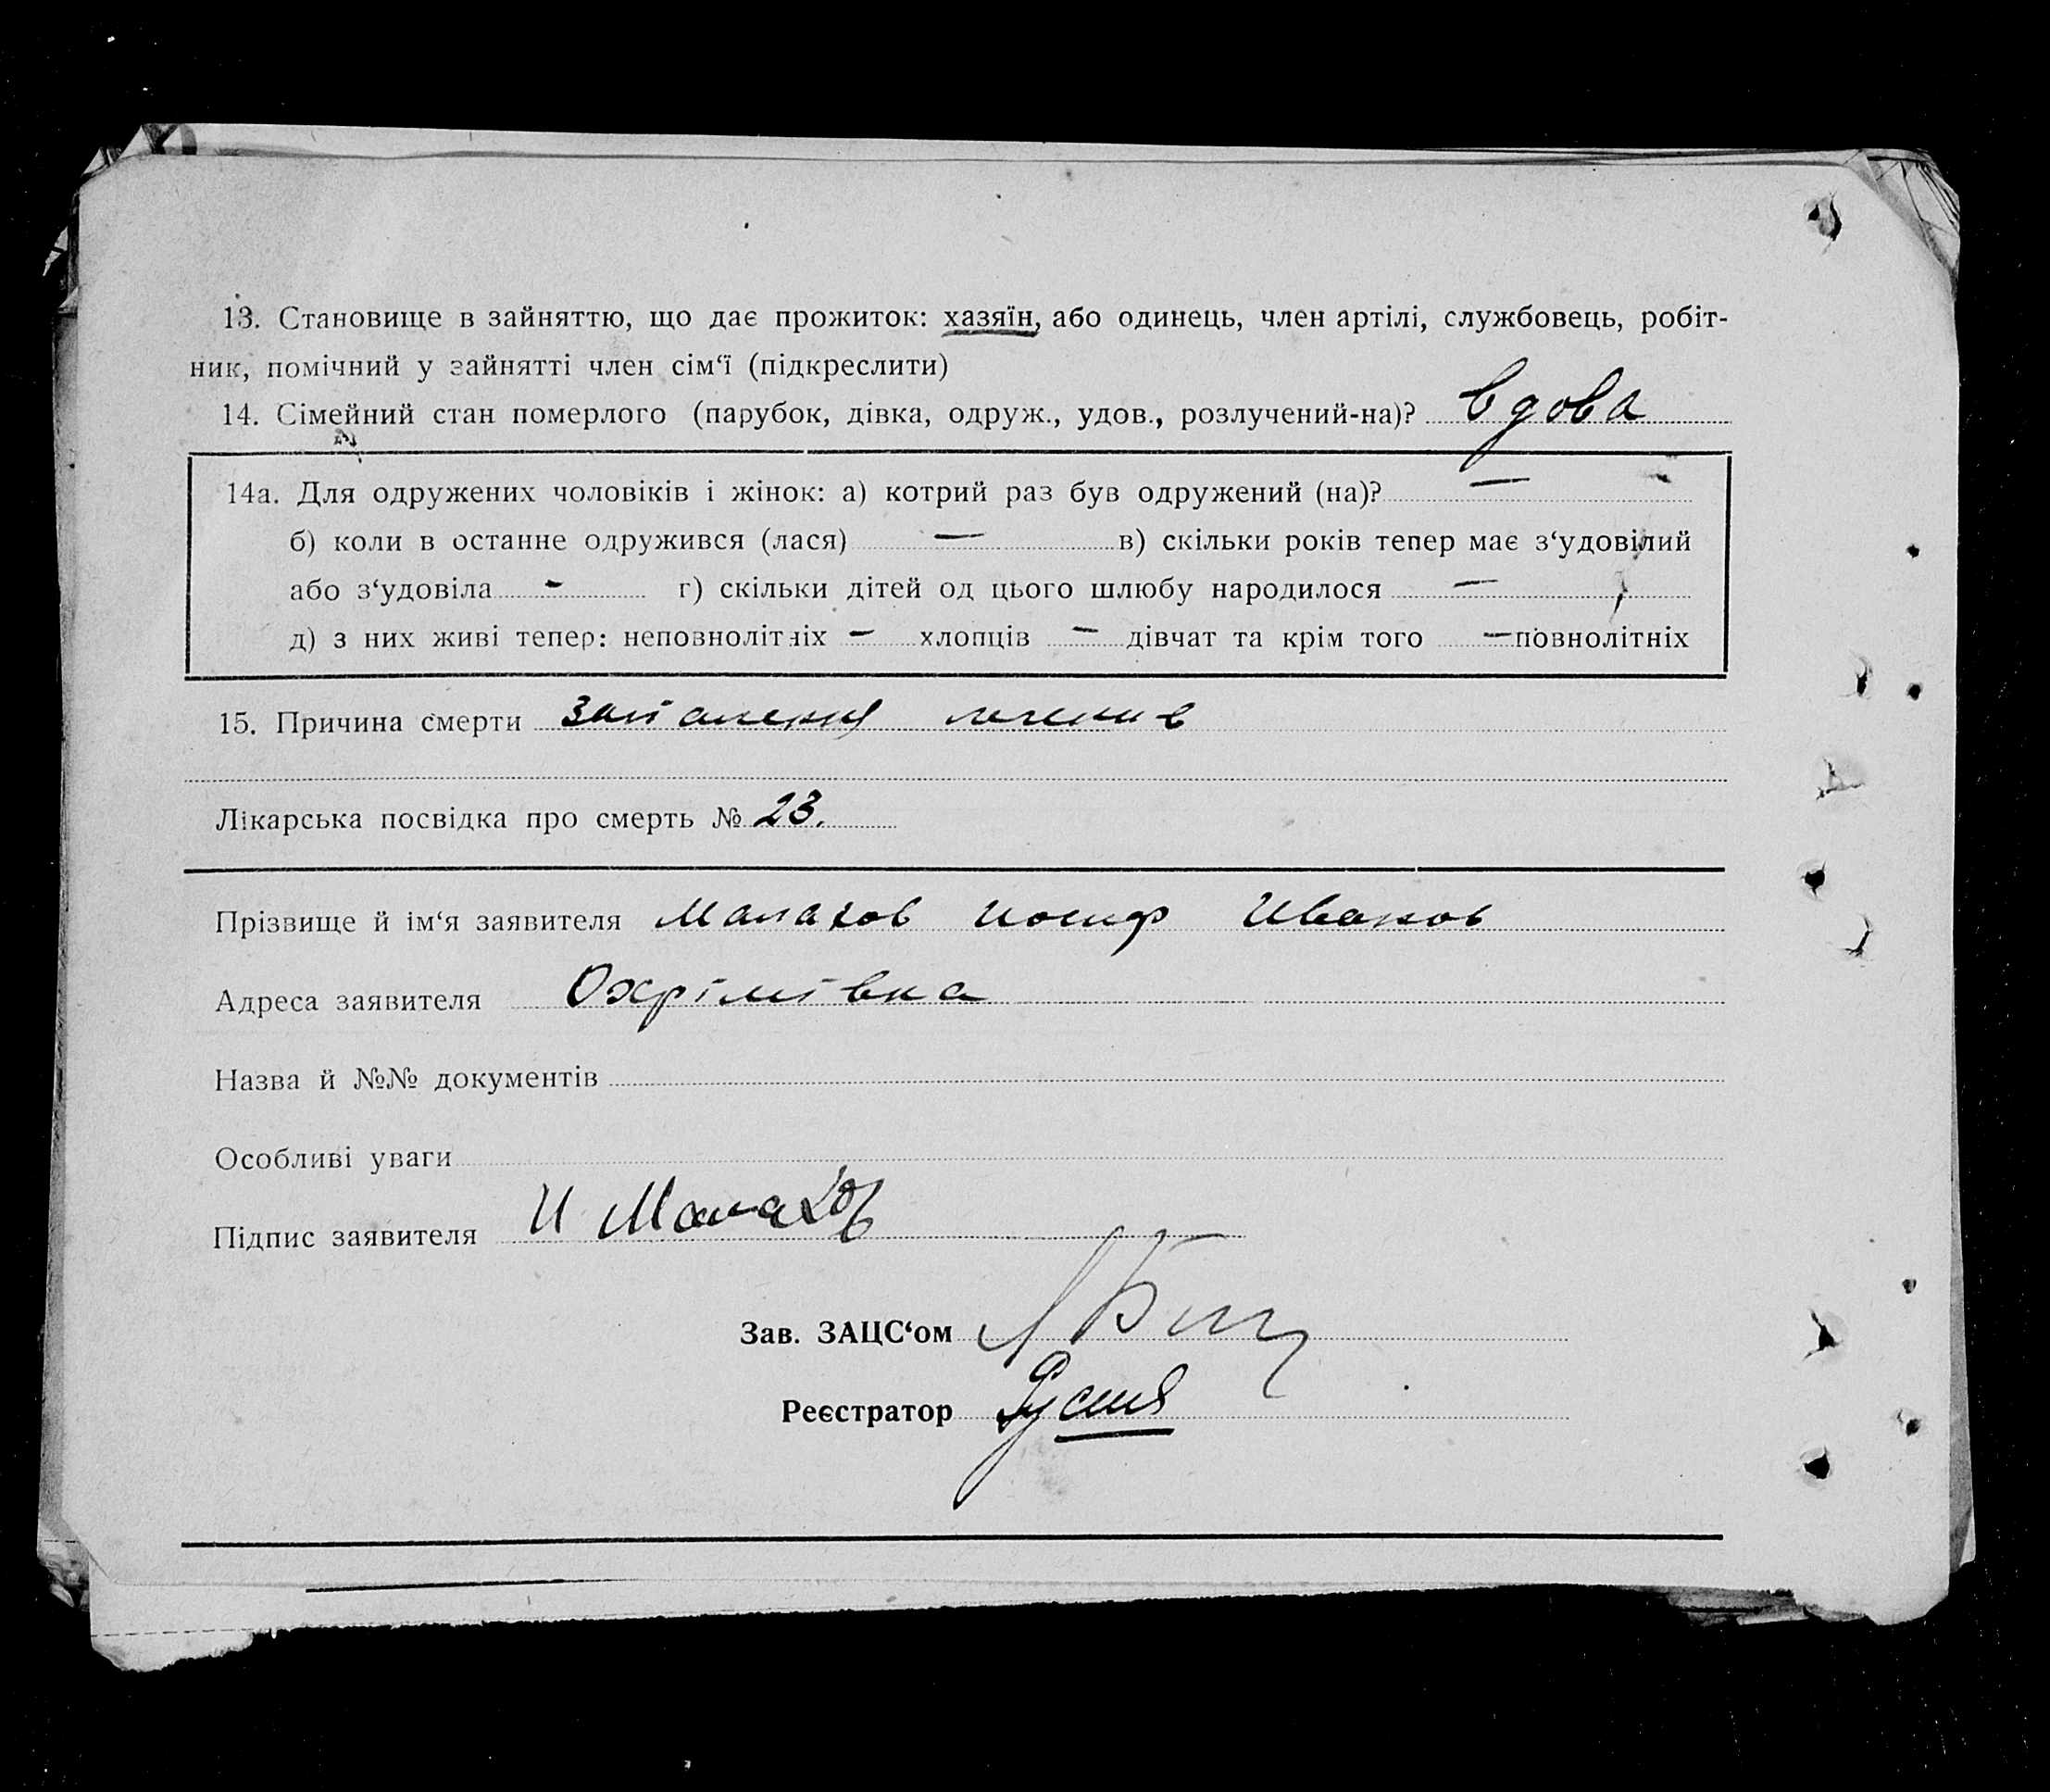 13. Становище в зайняттю, що дає прожиток: хазяїн, або одинець, член артілі, службовець, робіт-
ник, помічний у зайнятті член сім‘ї (підкреслити)
14. Сімейний стан померлого (парубок, дівка, одруж., удов., розлучений-на)? вдова
14а. Для одружених чоловіків і жінок: а) котрий раз був одружений (на)? —
б) коли в останне одружився (лася) — в) скільки років тепер має з‘удовілий
або з‘удовіла - г) скільки дітей од цього шлюбу народилося —
д) з них живі тепер: неповнолітніх — хлопців — дівчат та крім того — повнолітніх
15. Причина смерти запалення легенів
Лікарська посвідка про смерть № 23.
Прізвище й ім‘я заявителя Малахов Иосиф Иванов
Адреса заявителя Охрімівка
Назва й №№ документів
Особливі уваги
Підпис заявителя И Малахов
Зав. ЗАЦС‘ом
Реєстратор